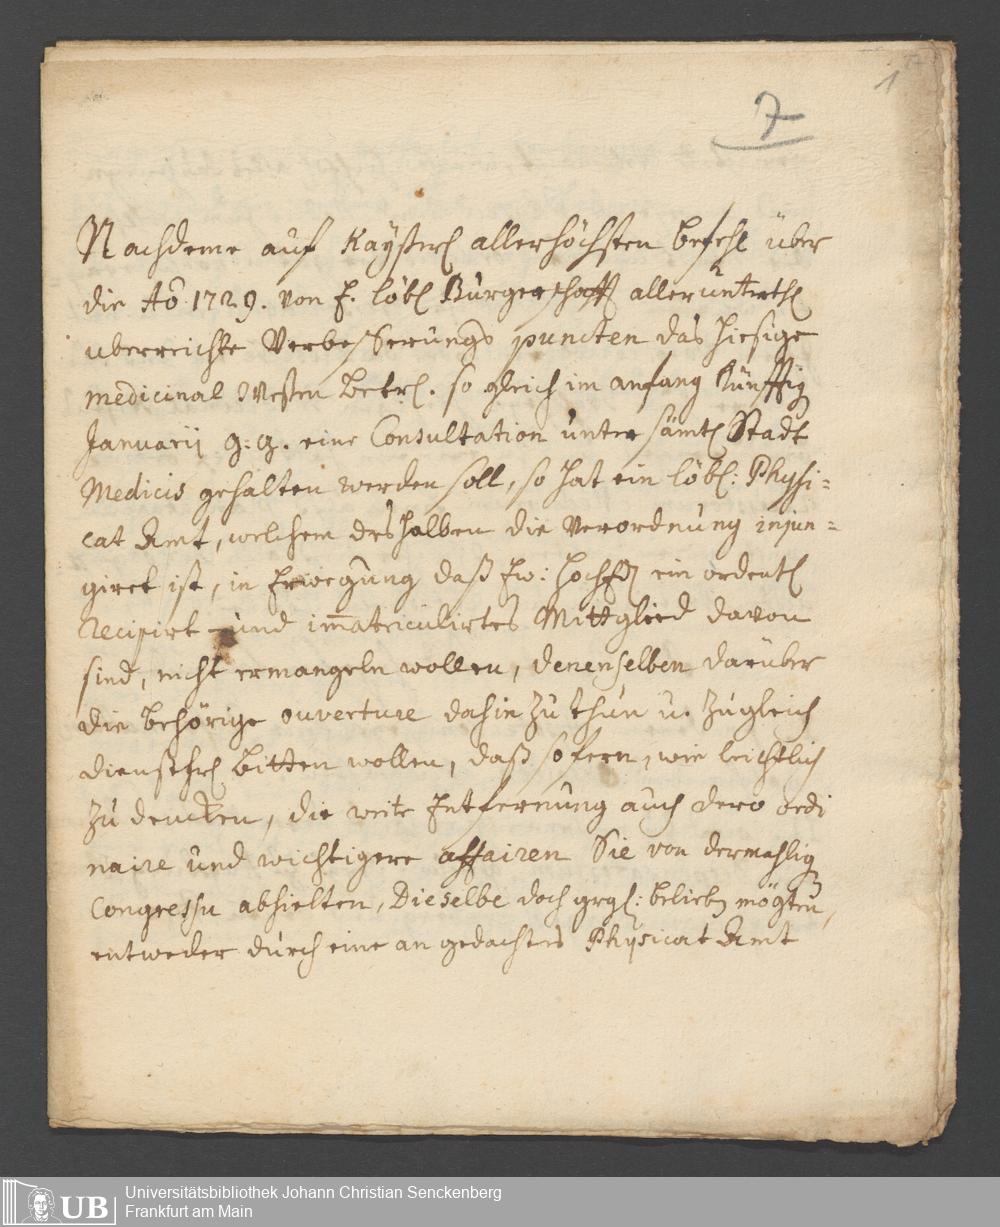 1
7
Nachdeme auf Kayserl allerhöchsten befehl über
die Aõ 1729. von E. löbl Burgerschafft alleruntrthl
uberreichte Verbesserungs puncten das hiesige
medicinal Wesen betrl. so gleich im anfang künfftig
Januarij g: G. eine Consultation unter sämtl Stadt
Medicis gehalten werden soll, so hat ein löbl: Physi=
cat Amt, welchem deshalben die Verordnung injun=
giret ist, in Erwegung daß Ew: Hoched ein ordentl
recipirt und im̄atriculirtes Mittglied davon
sind, nicht ermangeln wollen, denenselben darüber
die behörige ouverture dahin zu thun u. zugleich
dienstfrl bitten wollen, daß sofern, wie leichtlich
zu dencken, die weite Entfernung auch dero ordi
naire und wichtigere affairen Sie von dermahlig
Congressu abhielten, Dieselbe doch grgl: belieben mögten,
entweder durch eine an gedachtes Physicat Amt
UB
Universitätsbibliothek Johann Christian Senckenberg
Frankfurt am Main